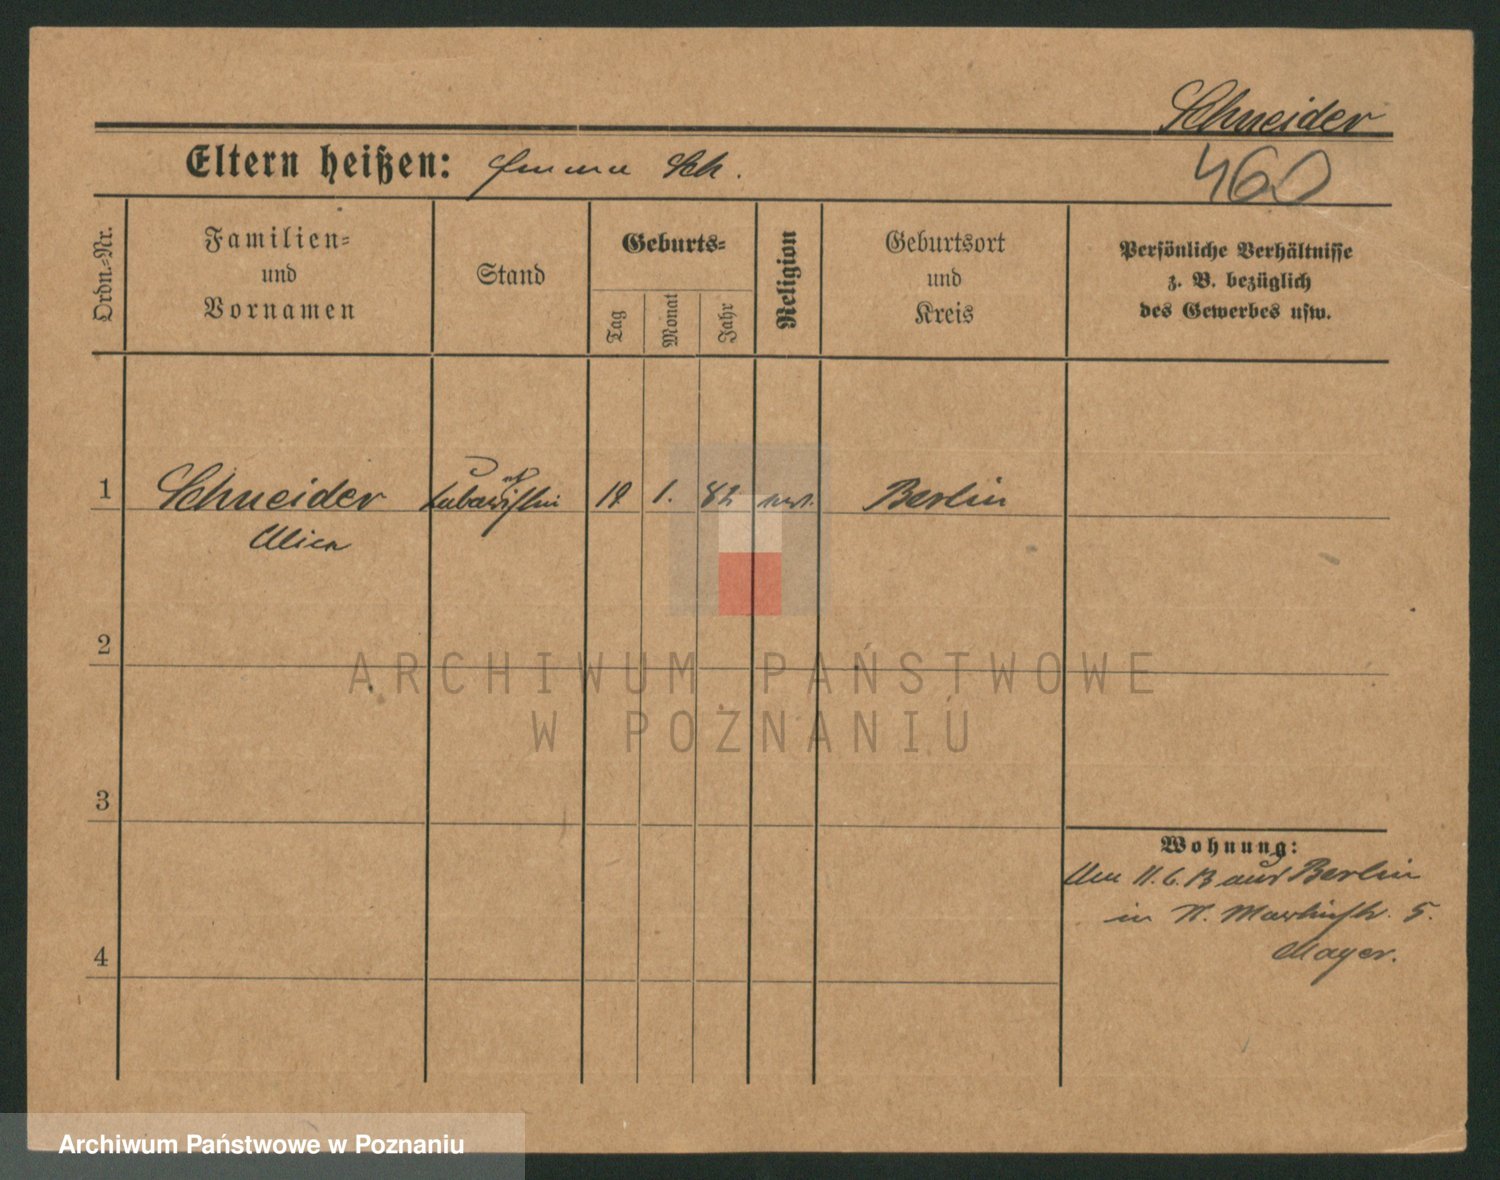 Schneider
460
Eltern heißen: Emma Sch.
Ordn.-Nr.
Familien-
und
Vornamen
Stand
Geburts-
Tag
Monat
Jahr
Religion
Geburtsort
und
Kreis
Persönliche Verhältnisse
z. B. bezüglich
des Gewerbes usw.
1 Schneider 19 1. 82 Berlin
2
ARCHIWUM PAŃSTWOWE
W POZNANIU
3
Wohnung:
11.6.13 aus Berlin
in 5.
4
Mayer.
Archiwum Państwowe w Poznaniu